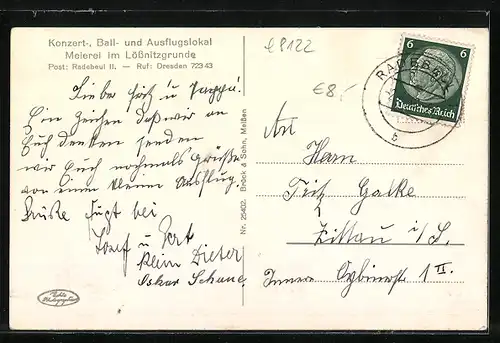 Konzert-, Ball- und Ausflugslokal
Meierei im Lößnitzgrunde
Post: Radebeul II. — Ruf: Dresden 723 43
Lieber Fritz u
Ein Zeichen daß wir an
Euch denken senden
wir Euch nochmals Grüße
von einem kleinen Ausflug.
Grüße fügt bei
Josef u
Klein Dieter
Oskar
Nr. 25402. Brück & Sohn, Meißen
Echte Photographie
e8122
€8,-
6 6
Deutsches Reich
RADEBEUL
b
An
Herrn
Fritz Galke
Zittau i/S.
Innere Oybinerstr 1 II.